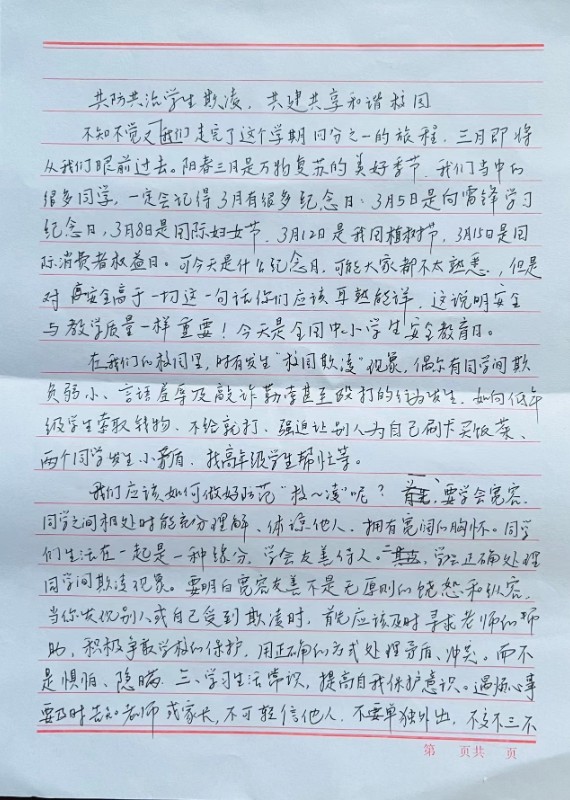 共防共治学生欺凌，共建共享和谐校园
不知不觉又我们走完了这个学期四分之一的旅程，三月即将
从我们眼前过去。阳春三月是万物复苏的美好季节，我们当中的
很多同学，一定会记得3月有很多纪念日：3月5日是向雷锋学习
纪念日，3月8日是国际妇女节，3月12日是我国植树节，3月15日是国
际消费者权益日。可今天是什么纪念日，可能大家都不太熟悉，但是
对安全高于一切这一句话你们应该耳熟能详，这说明安全
与教学质量一样重要！今天是全国中小学生安全教育日。
在我们的校园里，时有发生“校园欺凌”现象，偶尔有同学间欺
负弱小、言语羞辱及敲诈勒索甚至殴打的行为发生，如向低年
级学生索取钱物，不给就打，强迫让别人为自己刷卡买饭菜、
两个同学发生小矛盾，找高年级学生帮忙等。
我们应该如何做好防范“校～凌”呢？要学会宽容，
同学之间相处时能充分理解、体谅他人，拥有宽阔的胸怀。同学
们生活在一起是一种缘分，学会友善待人。二学会正确处理
同学间欺凌现象。要明白宽容友善不是无原则的饶恕和纵容，
当你发现别人或自己受到欺凌时，首先应该及时寻求老师的帮
助，积极争取学校的保护，用正确的方式处理矛盾、冲突。而不
是惧怕、隐瞒。三、学习生活常识，提高自我保护意识。遇烦心事
要及时告知老师或家长，不可轻信他人，不要单独外出，不交不三不
第 页共 页